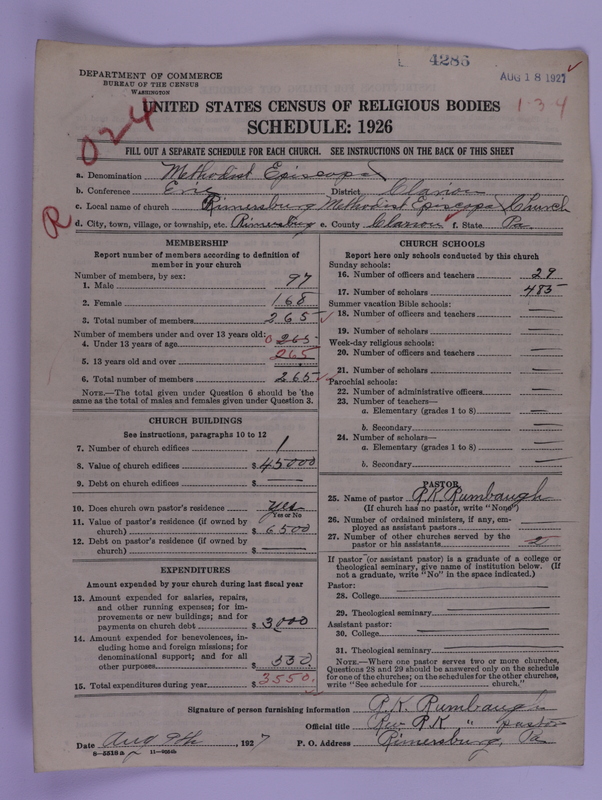 4285
AUG 18 1927
DEPARTMENT OF COMMERCE
BUREAU OF THE CENSUS
WASHINGTON
024
1-3-4
UNITED STATES CENSUS OF RELIGIOUS BODIES
SCHEDULE: 1926
FILL OUT A SEPARATE SCHEDULE FOR EACH CHURCH. SEE INSTRUCTIONS ON THE BACK OF THIS SHEET
a. Denomination Methodist Episcopal
b. Conference Erie District Clarion
c. Local name of church Rimersburg Methodist Episcopal Church
R
d. City, town, village, or township, etc. Rimersburg e. County Clarion f. State Pa.
MEMBERSHIP
Report number of members according to definition of member in your church
Number of members, by sex:
1. Male 97
2. Female 168
3. Total number of members 265
Number of members under and over 13 years old:
4. Under 13 years of age 0 265
5. 13 years old and over 265
6. Total number of members 265
NOTE.—The total given under Question 6 should be the
same as the total of males and females given under Question 3.
CHURCH BUILDINGS
See instructions, paragraphs 10 to 12
7. Number of church edifices 1
8. Value of church edifices $45000
9. Debt on church edifices $ —
10. Does church own pastor's residence yes
Yes or No
11. Value of pastor's residence (if owned by
church) $6500
12. Debt on pastor's residence (if owned by
church) $ —
EXPENDITURES
Amount expended by your church during last fiscal year
13. Amount expended for salaries, repairs,
and other running expenses; for im-
provements or new buildings; and for
payments on church debt $3000
14. Amount expended for benevolences, in-
cluding home and foreign missions; for
denominational support; and for all
other purposes $ 550.
15. Total expenditures during year $3550.
CHURCH SCHOOLS
Report here only schools conducted by this church
Sunday schools:
16. Number of officers and teachers 29
17. Number of scholars 485
Summer vacation Bible schools:
18. Number of officers and teachers —
19. Number of scholars —
Week-day religious schools:
20. Number of officers and teachers —
21. Number of scholars —
Parochial schools:
22. Number of administrative officers —
23. Number of teachers—
a. Elementary (grades 1 to 8) —
b. Secondary —
24. Number of scholars—
a. Elementary (grades 1 to 8) —
b. Secondary —
PASTOR
25. Name of pastor P.K. Rumbaugh
(If church has no pastor, write "None")
26. Number of ordained ministers, if any, em-
ployed as assistant pastors —
27. Number of other churches served by the
pastor or his assistants
If pastor (or assistant pastor) is a graduate of a college or
theological seminary, give name of institution below. (If
not a graduate, write "No" in the space indicated.)
Pastor:
28. College —
29. Theological seminary —
Assistant pastor:
30. College —
31. Theological seminary —
NOTE.—Where one pastor serves two or more churches,
Questions 28 and 29 should be answered only on the schedule
for one of the churches; on the schedules for the other churches,
write "See schedule for church."
Signature of person furnishing information P.K. Rumbaugh
Official title Rev. P.K " pastor
Date Aug 9th, 1927 P. O. Address Rimersburg, Pa
8-5518a